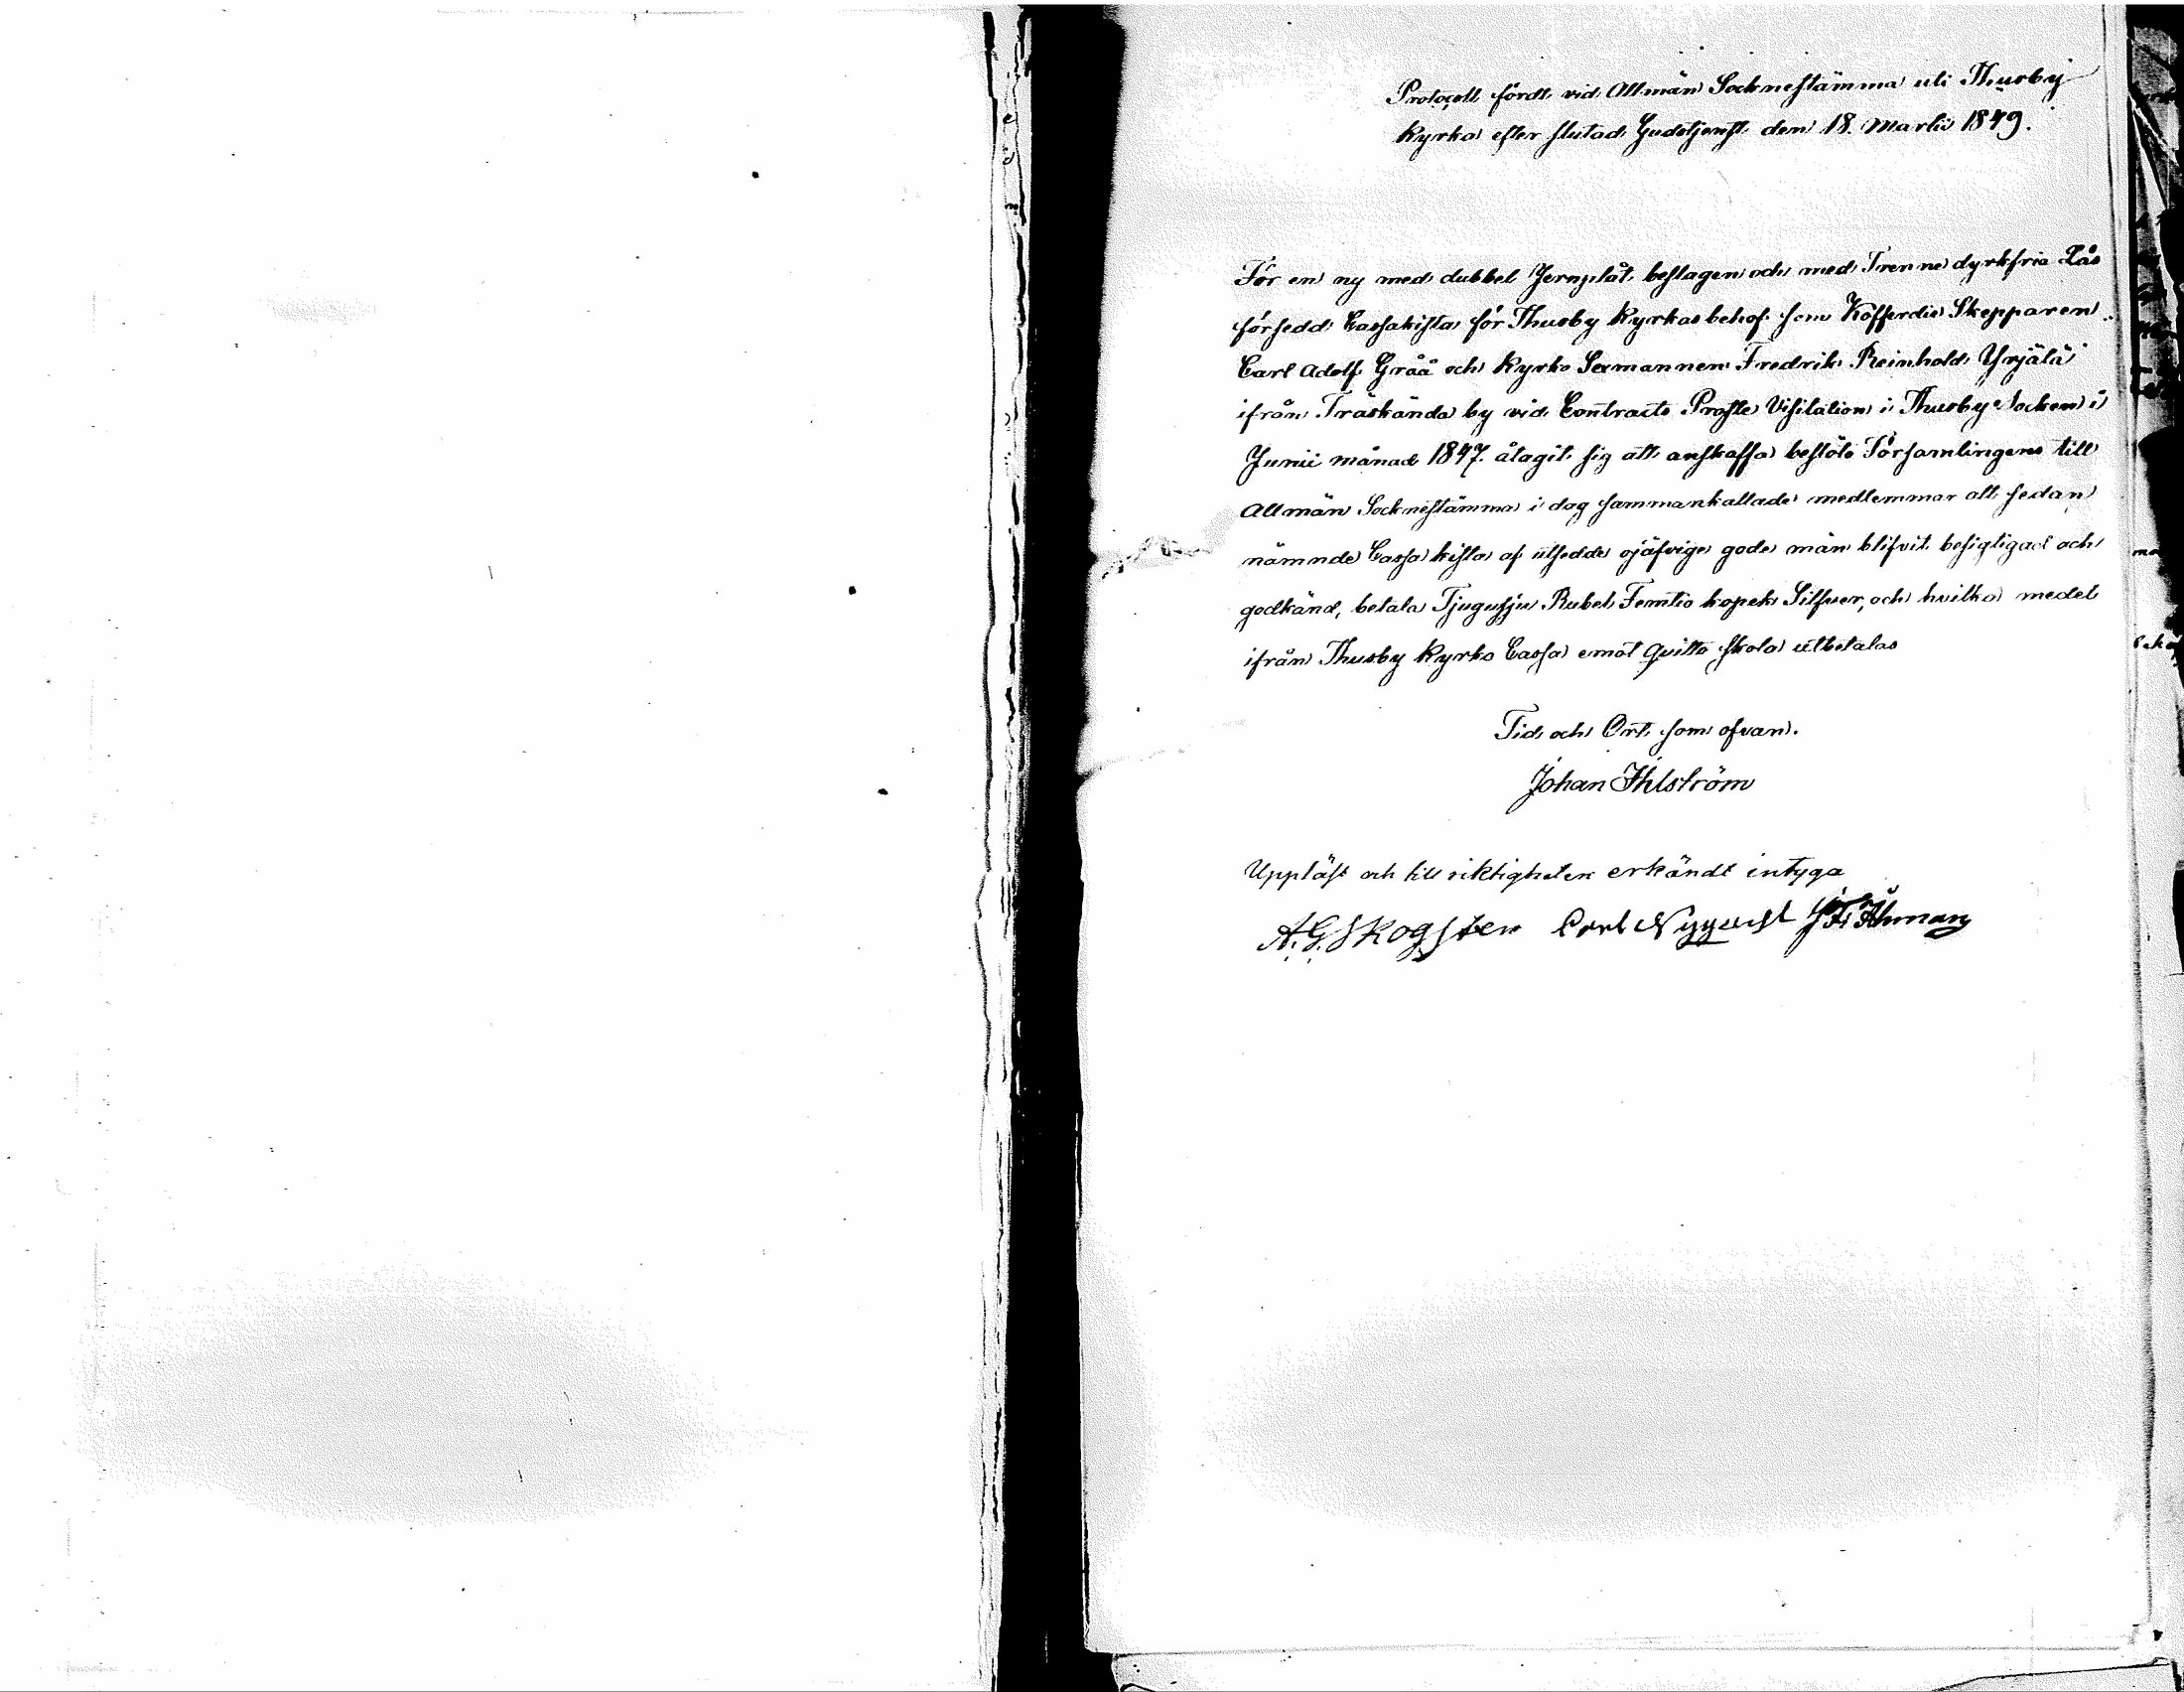 Protocoll fördt vid Allmän Sockneftämma uti Thusby
Kyrka efter slutad Gudstjenst den 18. Martii 1849.
För en ny med dubbel Jernplåt beslagen och med Trenne dyrkfria Lås
försedd Cassakista för Thusby Kyrkas behof som Kofferdie Skepparen
Carl Adolf Gråå och Kyrko Sexmannen Fredrik Reinhold Yrjälä
ifrån Träskända by vid Contracts Proste Visitation i Thusby Socken i
Junii månad 1847. åtagit sig att anskaffa beslöto Församlingens till
Allmän Socknestämma i dag sammankallade medlemmar att sedan
nämnde Cassa kista af utsedde ojäfvige gode män blifvit besigtigad och
godkänd, betala Tjugusju Rubel Femtio kopek Silfver, och hvilka medel
ifrån Thusby Kyrko Cassa emot Quitto skola utbetalas
Tid och Ort som ofvan.
Johan Ihlström
Uppläst och till riktigheten erkändt intyga
A.G. Skogsten Carl Nyqvist